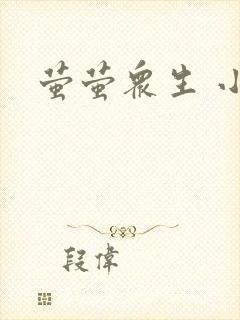 萤萤众生 小
段偉